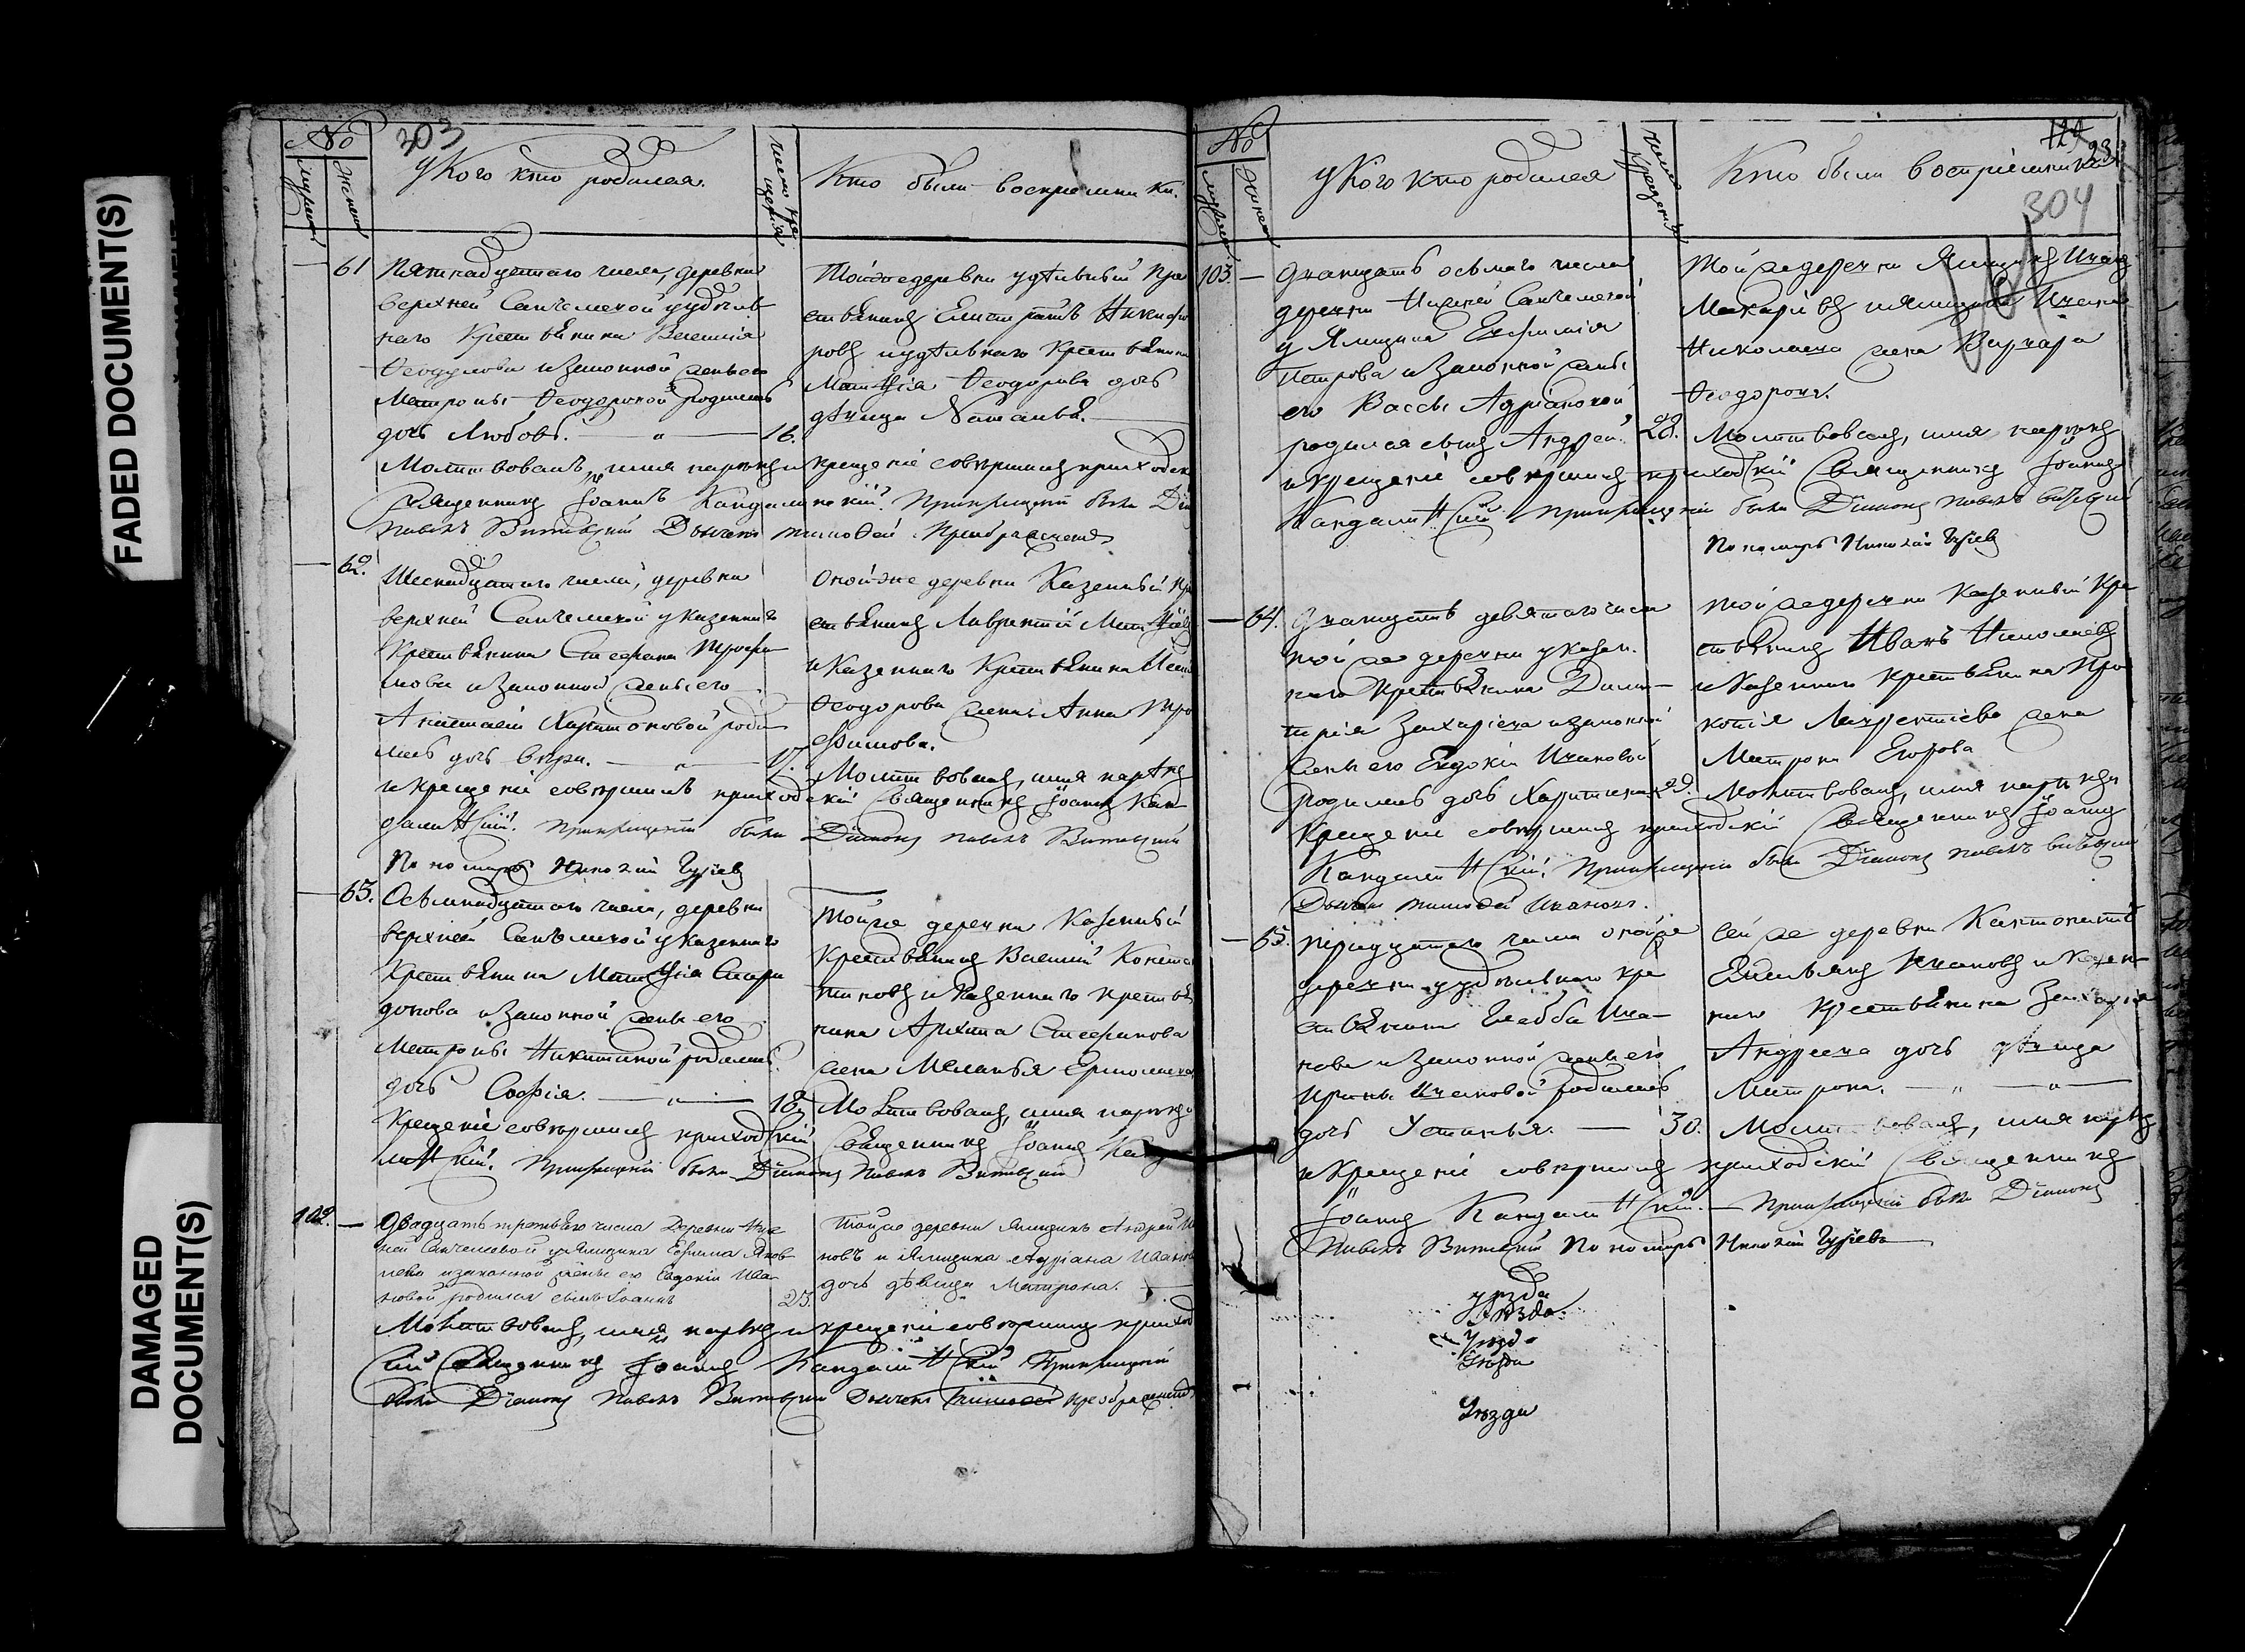 FADED DOCUMENT(S)
DAMAGED
DOCUMENT(S)
№
303
мужеска
женска
у Кого кто родился.
число кре
щенія
Кто были воспріемники.
61
Пятнадцатаго числа, деревни
верхней Санчелеевой у удѣль
наго Крестьянина Василія
Ѳеодулова и законной жены его
Матроны Ѳеодоровой родилась
дочь Любовь. 16.
Тойже деревни удѣльный кре
стьянинъ Никифо
ровъ и удѣльнаго Крестьянина
Матѳія Ѳеодорова дочь
дѣвица Наталья.
Молитвовалъ, имя нареклъ и крещеніе совершилъ приходскій
Священникъ Іоаннъ Кандалинскій. При крещеніи были Діаконъ
Павелъ Витевскій Дьячекъ Тимоѳей Преображенскій
62.
Шеснадцатаго числа, деревни
верхней Санчелеевой у казеннаго
Крестьянина Стефана Трофи
мова и законной жены его
Анастасіи Харитоновой роди
лась дочь Вѣра. 17.
Оной же деревни Казенный кре
стьянинъ Лаврентій Матѳіевъ
и Казеннаго Крестьянина
Ѳеодорова жена Анна Тро
фимова.
Молитвовалъ, имя нареклъ
и крещеніе совершилъ приходскій Священникъ Іоаннъ Кан
далинскій. При крещеніи были Діаконъ Павелъ Витевскій
Пономарь Николай Гузіевъ
63.
Осьмнадцатаго числа, деревни
верхней Санчелеевой у казеннаго
Крестьянина Матѳія Спири
донова и законной жены его
Матроны Никитиной родилась
дочь Софія. 18
Тойже деревни Казенный
Крестьянинъ Василій Конста
тиновъ и Казеннаго крестья
нина Архипа Стефанова
жена Меланья Ермолаева
Молитвовалъ, имя нареклъ
Крещеніе совершилъ приходскій Священникъ Іоаннъ Канда
линскій. При крещеніи были Діаконъ Павелъ Витевскій
102.
Двадцать третьяго числа Деревни Ниж
ней Санчелеевой у Ямщика Ефима Яков
лева и законной жены его Евдокіи Ива
новой родился сынъ Іоаннъ 23.
Тойже деревни Ямщикъ Андрей
новъ и Ямщика Адріана Иванова
дочь дѣвица Матрона.
Молитвовалъ, имя нареклъ и крещеніе совершилъ приход
скій Священникъ Іоаннъ Кандалинскій При крещеніи
были Діаконъ Павелъ Витевскій Дьячекъ Тимоѳей Преображенскій
№
мужеска
женска
у Кого кто родился
число
крещенія
Кто были воспріемники
304
103.
Дватцать осьмаго числа
деревни Нижней Санчелеевой
у Ямщика Евфимія
Петрова и Законной жены
его Вассы Адріановой
родился сынъ Андрей. 28.
Той же деревни Ямщикъ Иванъ
Макаріевъ и Ямщика Ивана
Николаева жена Варвара
Ѳеодорова.
Молитвовалъ, имя нареклъ
и крещеніе совершилъ приходскій Священникъ Іоаннъ
Кандалинскій При крещеніи были Діаконъ Павелъ Витевскій
Пономарь Николай Гузіевъ
64.
Дватцать девятаго числа
той же деревни у казен
наго Крестьянина Дими
трія Захаріева и законной
жены его Евдокіи Ивановой
родилась дочь Харитина 29.
той же деревни Казенный Кре
стьянинъ Иванъ Николаевъ
и Казеннаго крестьянина Про
копія Лаврентіева жена
Матрона Егорова
Молитвовалъ, имя нареклъ и
крещеніе совершилъ приходскій Священникъ Іоаннъ
Кандалинскій. При крещеніи были Діаконъ Павелъ Витевскій
Дьячекъ Тимоѳей Ивановъ.
65.
тридцатаго числа онойже
деревни у удѣльнаго кре
стьянина Глебба Ива
нова и Законной жены его
Ирины Ивановой родилась
дочь Устинья. 30.
сей же деревни Кантонистъ
Емельянъ Ивановъ и Казен
наго Крестьянина Захарія
Андреева дочь дѣвица
Матрона.
Молитвовалъ, имя нареклъ
и Крещеніе совершилъ приходскій Священникъ
Іоаннъ Кандалинскій. При крещеніи были Діаконъ
Павелъ Витевскій Пономарь Николай Гузіевъ
уезда
уезда
Уезда